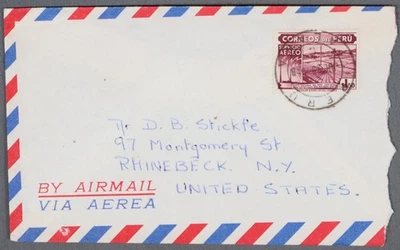 CORREOS DEL PERU
SERVICIO
AEREO
Mr D. B. Stickle
97 Montgomery St
RHINEBECK. N.Y.
UNITED STATES.
BY AIRMAIL
VIA AEREA